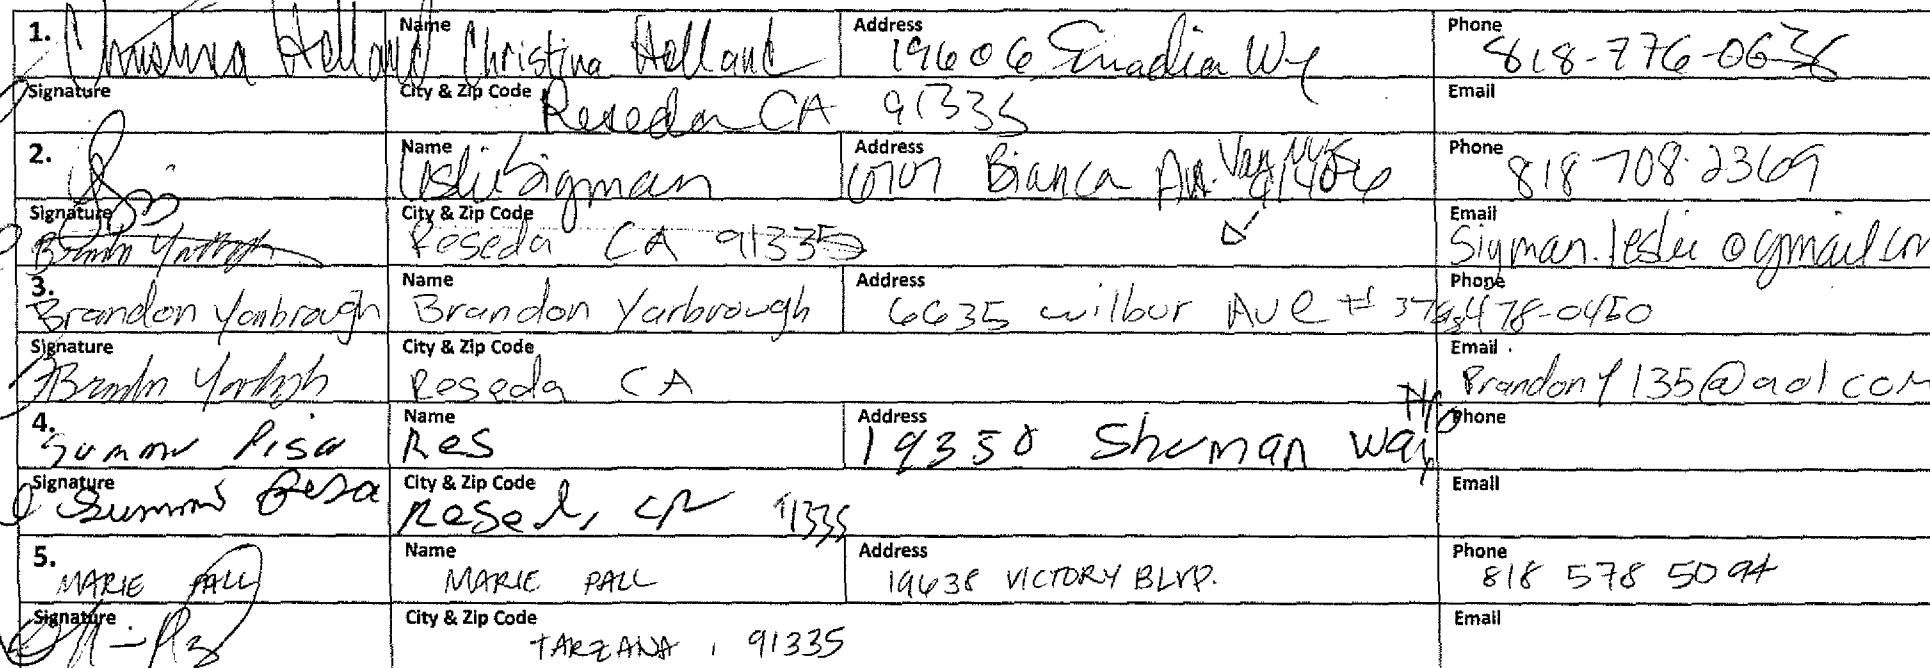 1. Christina Holland Name Christina Holland Address 19606 Enadia Wy Phone 818-776-0636
Signature City & Zip Code Reseda CA 91335 Email
2. Name Leslie Sigman Address Bianca Ave. Van Nuys 91406 Phone 818 708-2369
Signature City & Zip Code Reseda CA 91335 Email Sigman.leslie@gmail.com
3. Brandon Yarbrough Name Brandon Yarbrough Address 6635 wilbur Ave # 37 Phone 478-0450
Signature Brandon Yarbrough City & Zip Code Reseda CA Email BrandonY135@aol com
4. Summer Pisa Name Res Address 19350 Sherman Way Phone
Signature Summer Pisa City & Zip Code Resed, CA 91335 Email
5. MARIE PALL Name MARIE PALL Address 19638 VICTORY BLVD. Phone 818 578 5094
Signature City & Zip Code TARZANA , 91335 Email